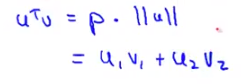 uᵀv = p · ||u||
= u₁v₁ + u₂v₂